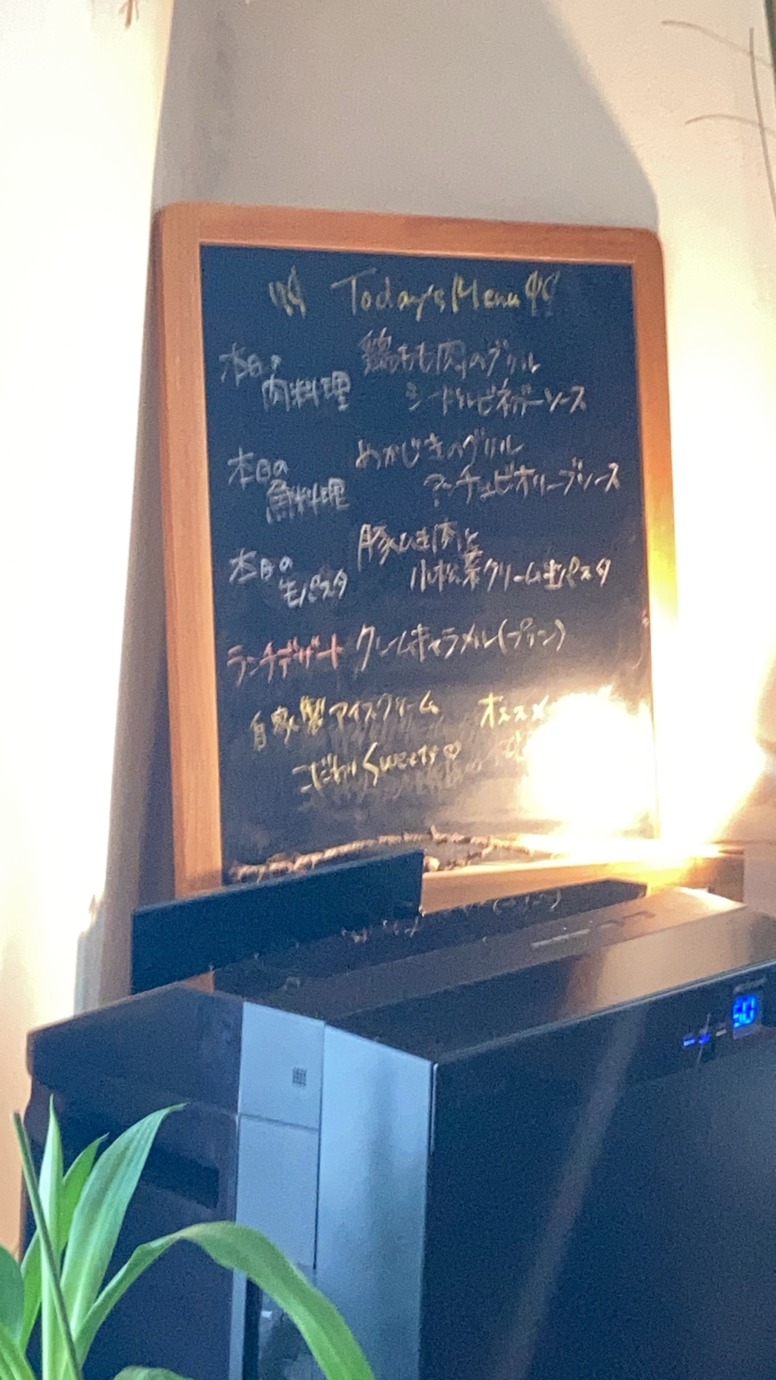 Today's Menu
本日の 鶏もも肉のグリル
肉料理 シードルビネガーソース
本日の めかじきのグリル
魚料理 アンチョビオリーブソース
本日の 豚ひき肉と
生パスタ 小松菜クリーム生パスタ
ランチデザート クレームキャラメル(プリン)
自家製アイスクリーム オススメ
こだわりSweets♡
50